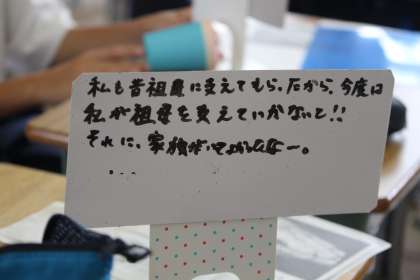 私も昔祖母に支えてもらったから、今度は
私が祖母を支えていかないと!!
それに、家族が
...